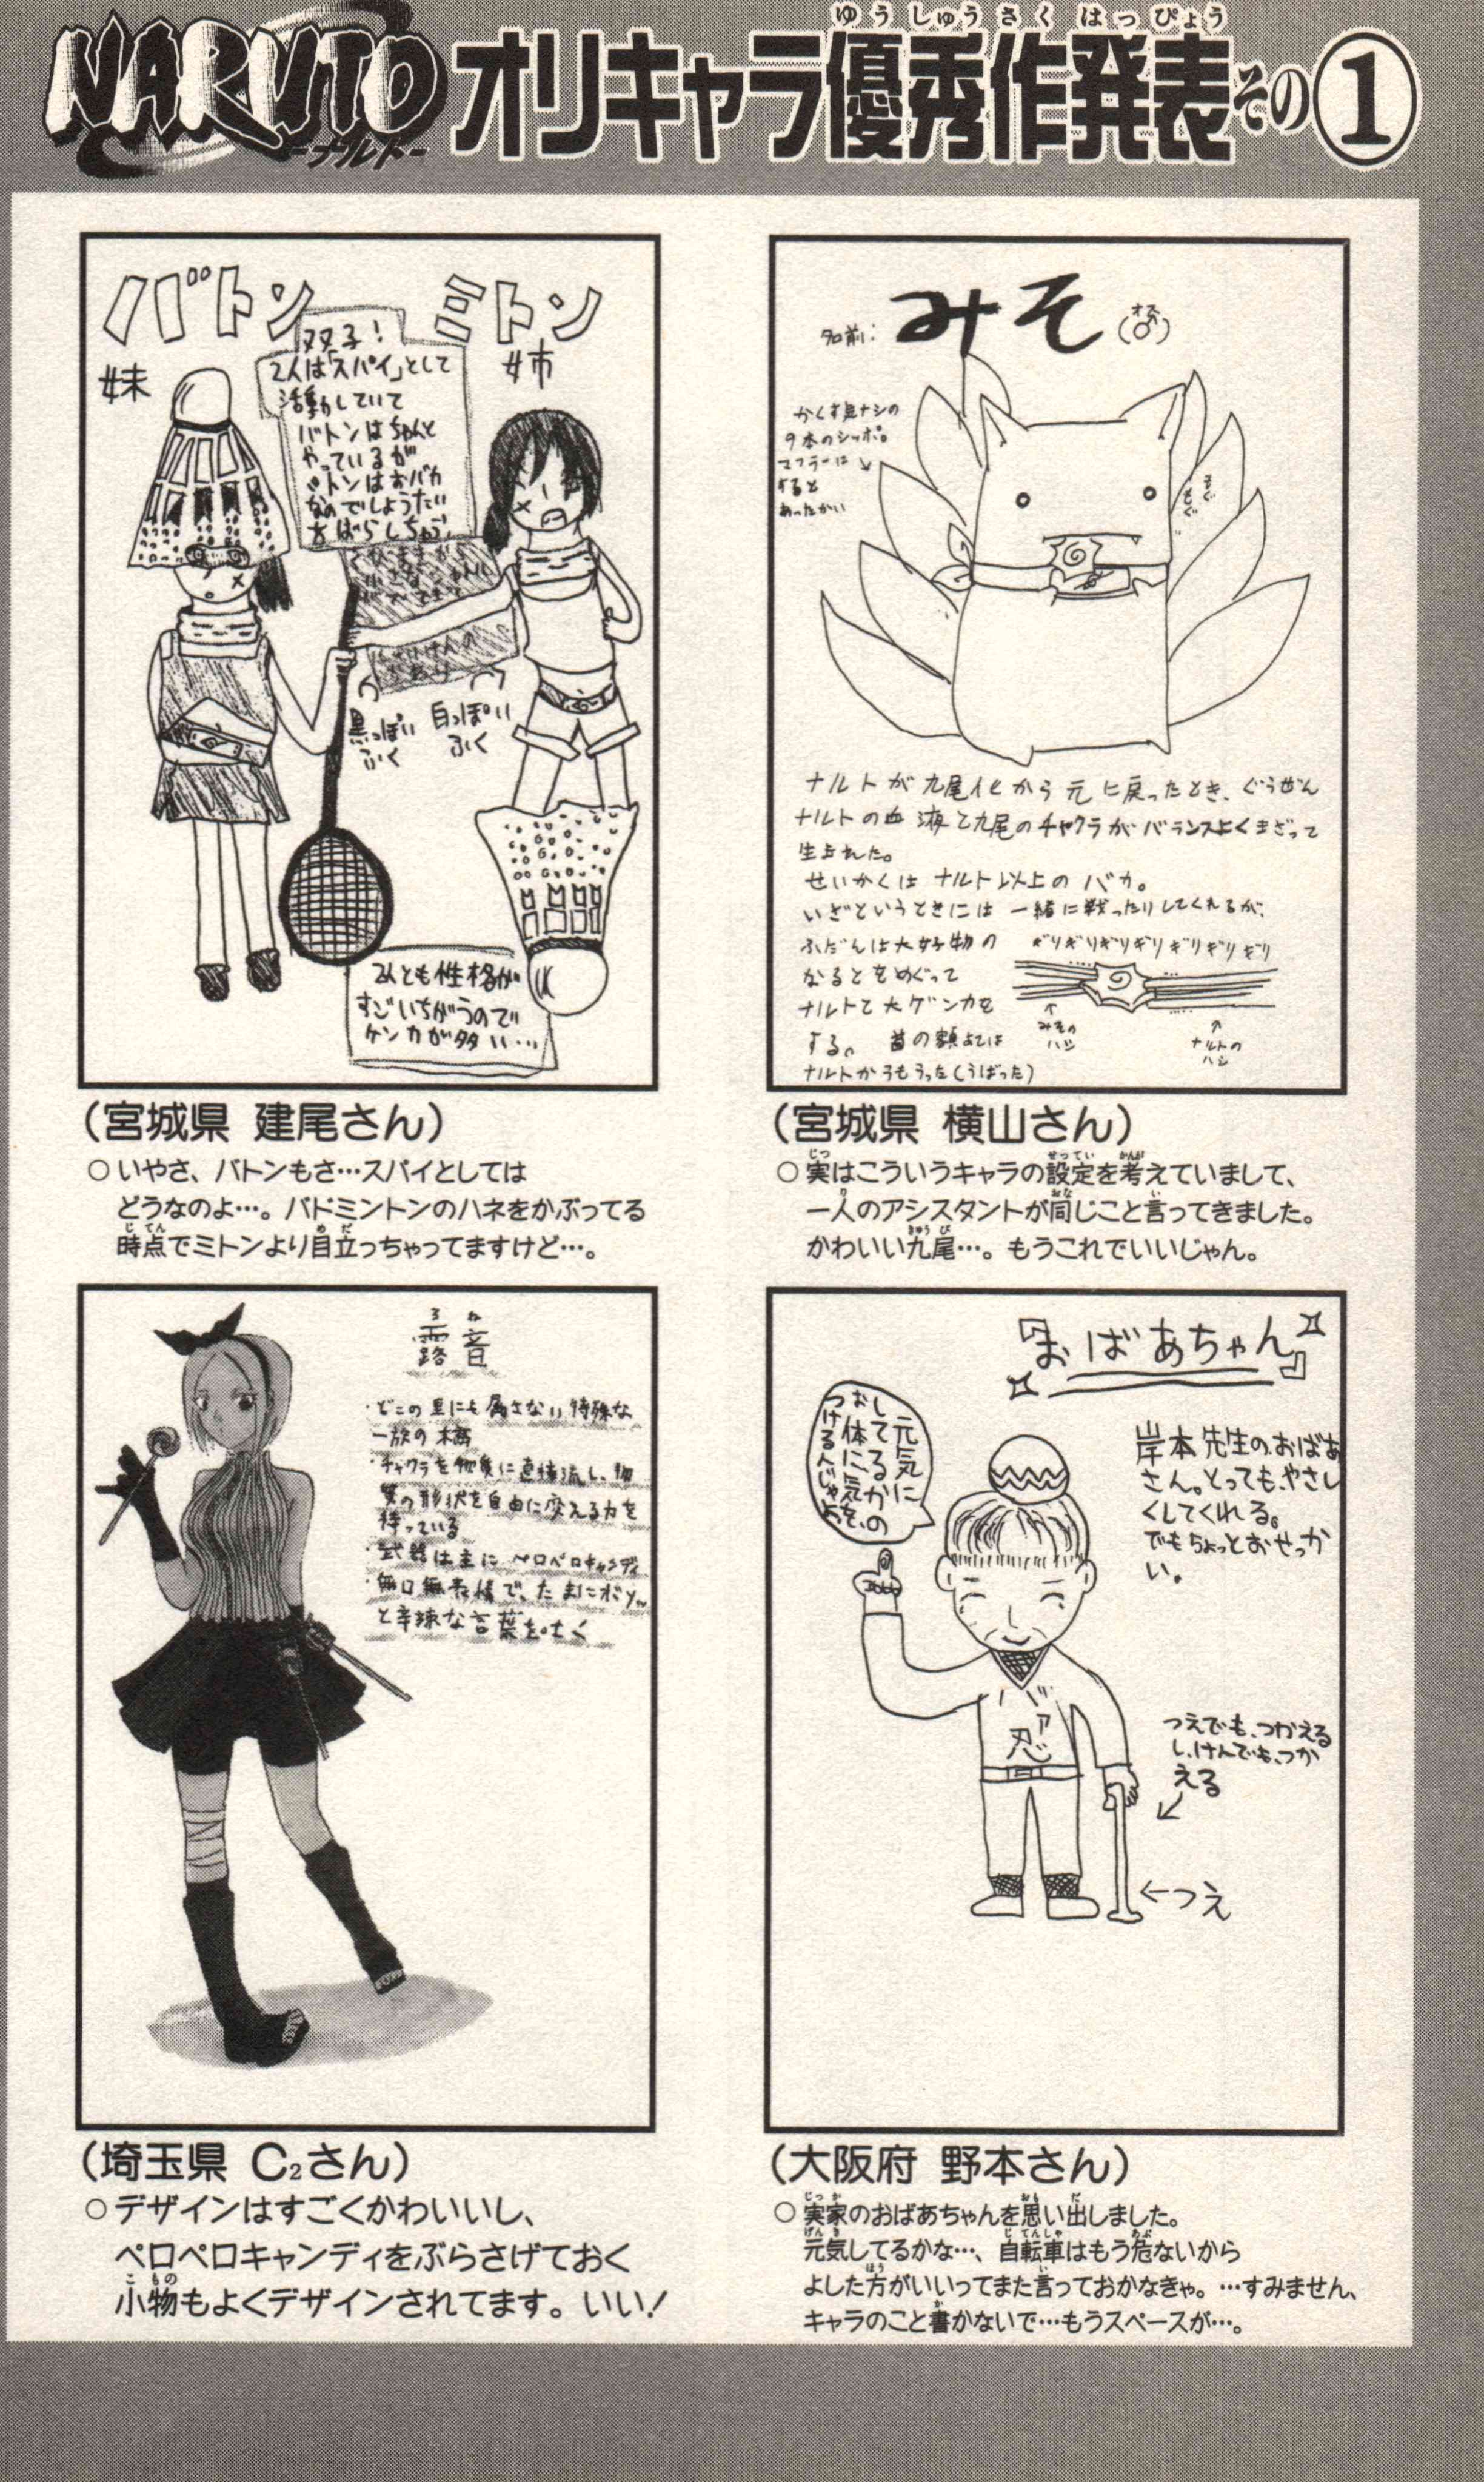 NARUTO
ーナルトー
オリキャラ優秀作発表その①
ゆうしゅうさくはっぴょう
バトン
妹
ミトン
姉
双子!
2人は「スパイ」として
活動していて
バトンはちゃんと
やっているが
なのでしょうたい
をばらしちゃう。
黒っぽい
ふく
白っぽい
ふく
2人とも性格が
すごいちがうので
ケンカが多い…
(宮城県 建尾さん)
○いやさ、バトンもさ…スパイとしては
どうなのよ…。バドミントンのハネをかぶってる
時点でミトンより目立っちゃってますけど…。
名前:みそ(オス♂)
かくす気ナシの
9本のシッポ。
マフラーに
すると
あったかい
ナルトが九尾化から元に戻ったとき、ぐうぜん
ナルトの血液と九尾のチャクラがバランスよくまざって
生まれた。
せいかくはナルト以上のバカ。
いざというときには一緒に戦ったりしてくれるが、
ふだんは大好物の
なるとをめぐって
ナルトと大ゲンカを
する。 首の額あては
ナルトからもらった(うばった)
ギリギリギリギリギリギリギリ
みその
ハシ
ナルトの
ハシ
(宮城県 横山さん)
○実はこういうキャラの設定を考えていまして、
一人のアシスタントが同じこと言ってきました。
かわいい九尾…。もうこれでいいじゃん。
露音
ろね
・どこの里にも属さない特殊な
一族の
・チャクラを物質に直接流し、物
質の形状を自由に変える力を
持っている
・武器は主にペロペロキャンディ
・無口無表情で、たまにボソッ
と辛辣な言葉を吐く
(埼玉県 C₂さん)
○デザインはすごくかわいいし、
ペロペロキャンディをぶらさげておく
小物もよくデザインされてます。いい!
『おばあちゃん』
元気に
してるかの
お体に気を
つけるんじゃぞ
岸本先生のおばあ
さん。とってもやさし
くしてくれる。
でもちょっとおせっか
い。
バァ忍
つえでも、つかえる
し、けんでも、つか
える
←つえ
(大阪府 野本さん)
○実家のおばあちゃんを思い出しました。
元気してるかな…、自転車はもう危ないから
よした方がいいってまた言っておかなきゃ。…すみません、
キャラのこと書かないで…もうスペースが…。